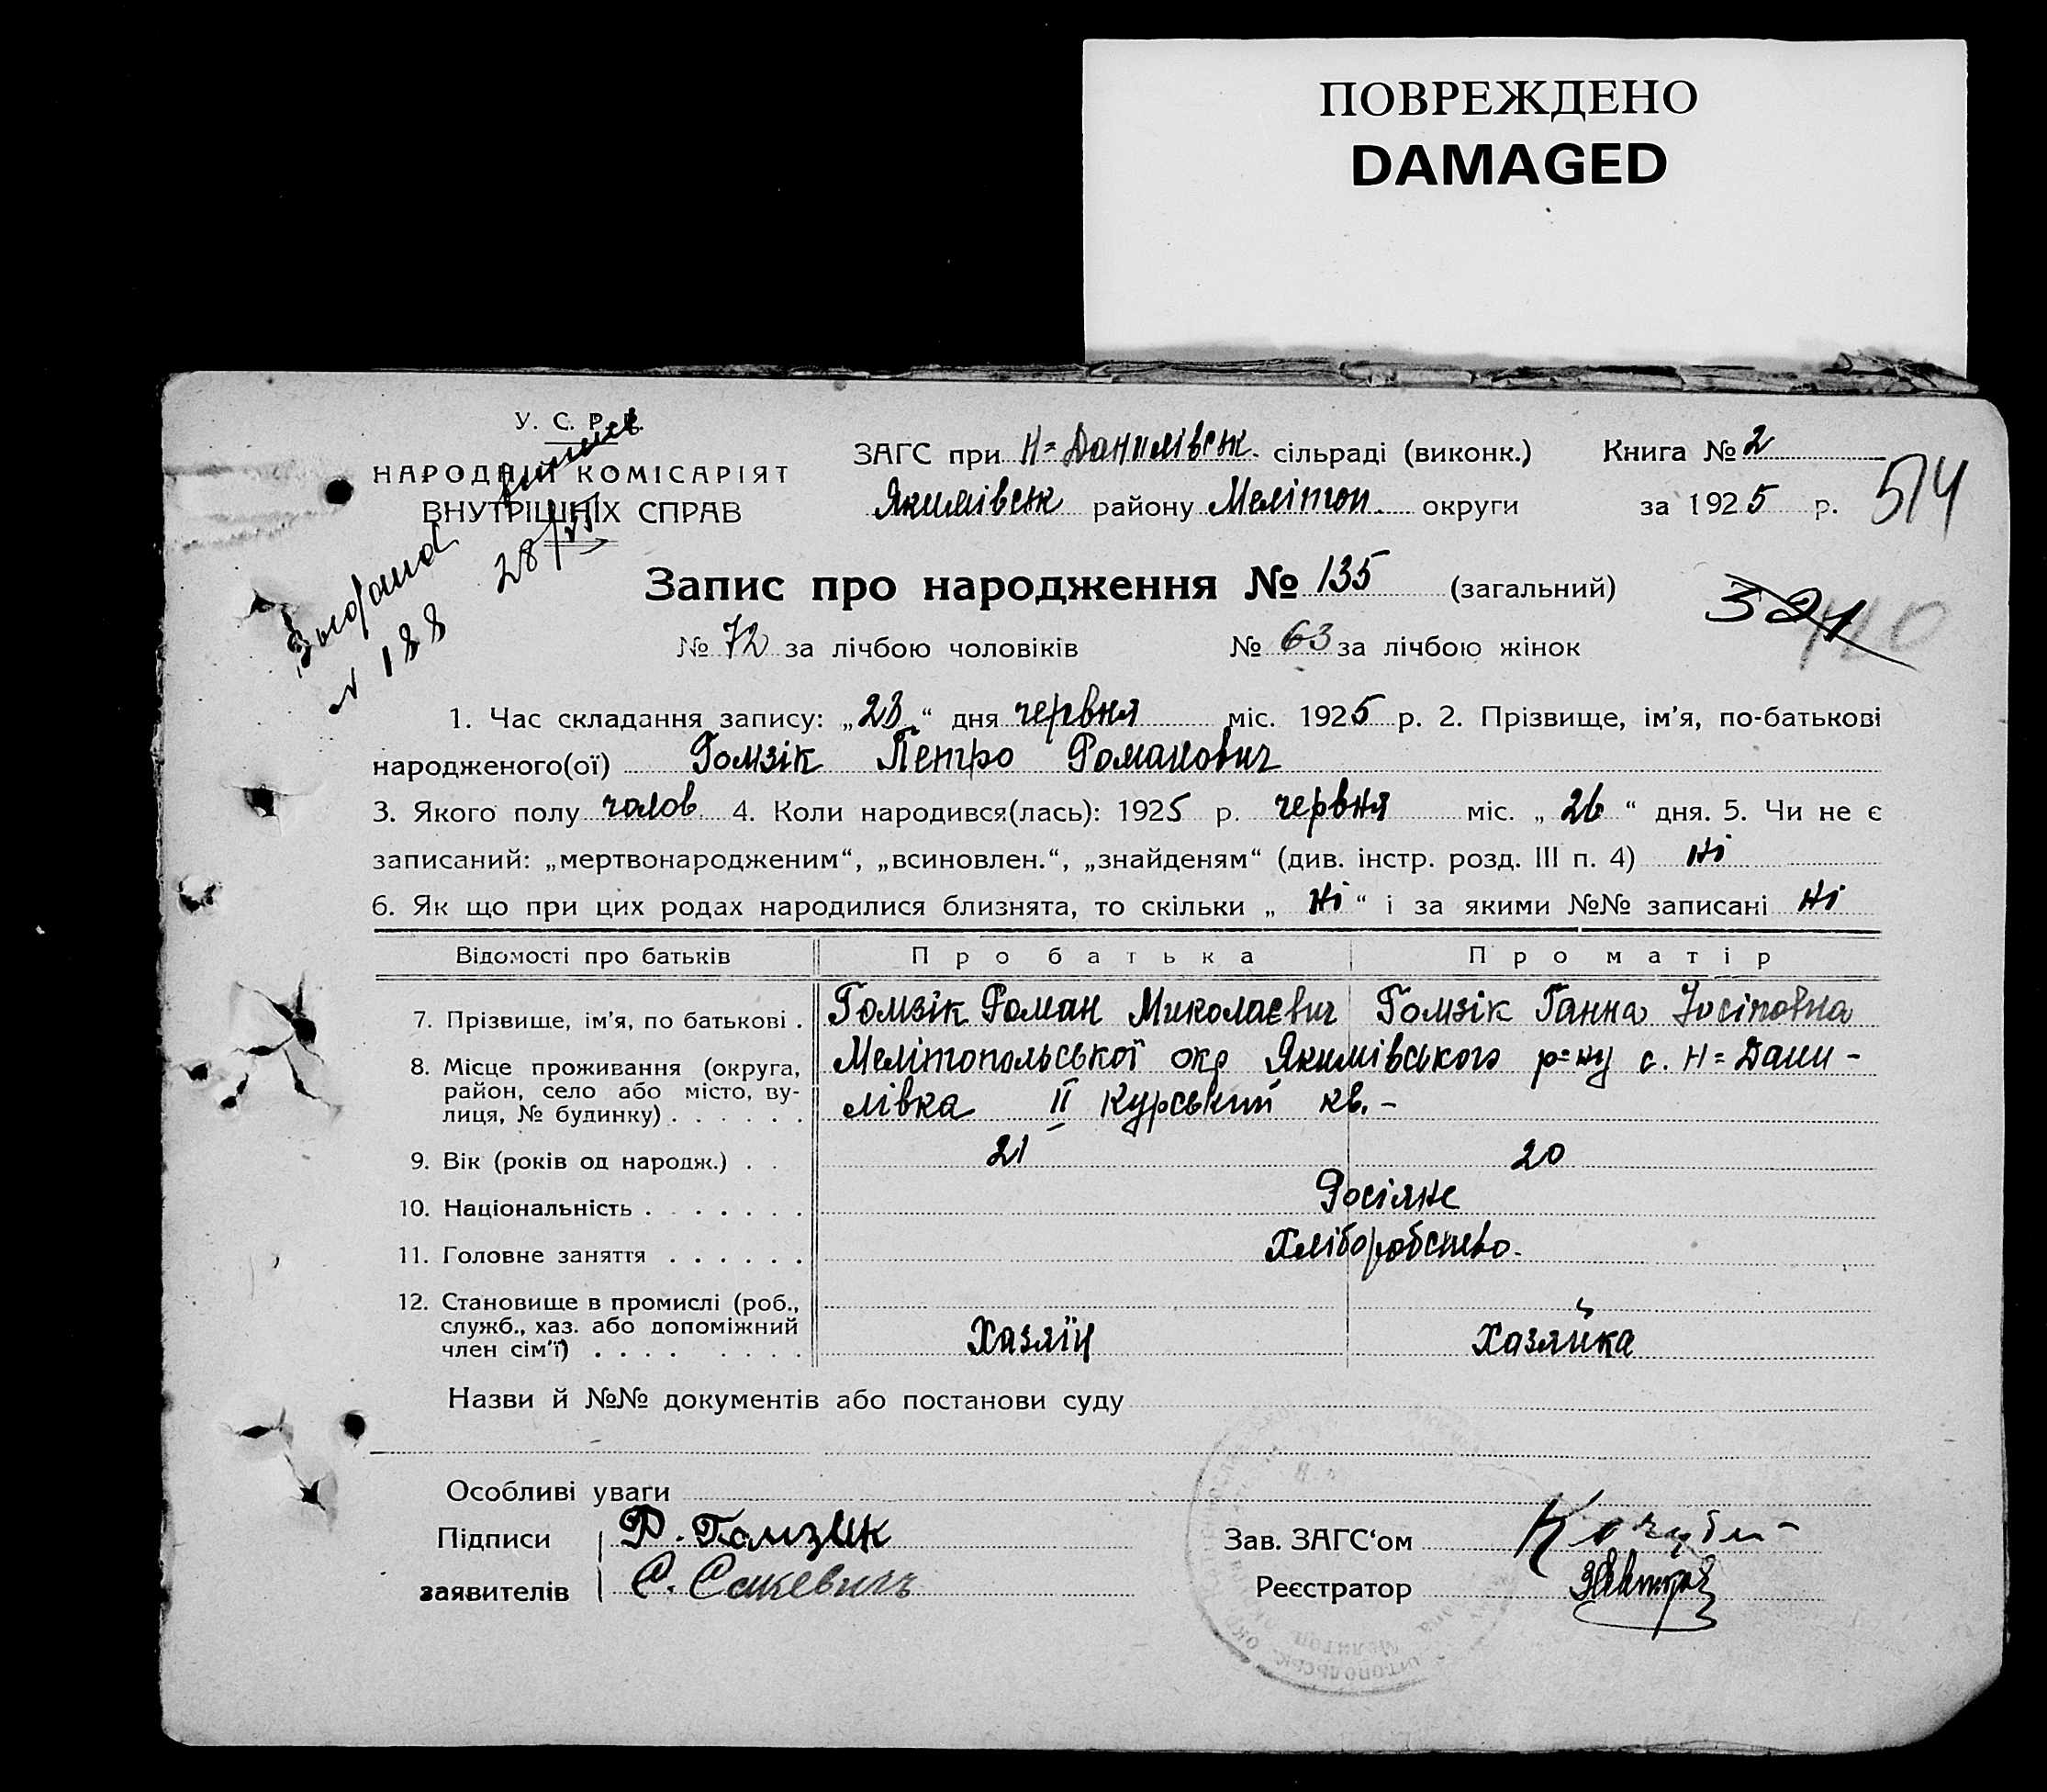 ПОВРЕЖДЕНО
DAMAGED
У. С. Р. Р.
НАРОДНИЙ КОМІСАРІЯТ
ВНУТРІШНІХ СПРАВ
ЗАГС при Н=Данилівськ. сільраді (виконк.) Книга № 2
Якимівськ району Меліто­п. округи за 1925 р.
514
28/VI
N 188
Запис про народження № 135 (загальний)
321
120
№ 72 за лічбою чоловіків № 63 за лічбою жінок
1. Час складання запису: „28“ дня червня міс. 1925 р. 2. Прізвище, ім’я, по-батькові
народженого(ої) Гомзік Петро Романович
3. Якого полу чолов. 4. Коли народився(лась): 1925 р. червня міс. „26“ дня. 5. Чи не є
записаний: „мертвонародженим“, „всиновлен.“, „знайденям“ (див. інстр. розд. III п. 4) Ні
6. Як що при цих родах народилися близнята, то скільки „Ні“ і за якими №№ записані Ні
Відомості про батьків Про батька Про матір
7. Прізвище, ім’я, по батькові . Гомзік Роман Миколаєвич Гомзік Ганна Йосіповна
8. Місце проживання (округа, Мелітопольської окр Якимівського р=ну с. Н=Дани-
район, село або місто, ву-
лиця, № будинку) . . . . . . лівка II Курський кв. -
9. Вік (років од народж.) . . 21 20
10. Національність . . . . . . . Росіяне
11. Головне заняття . . . . . . Хліборобство.
12. Становище в промислі (роб.,
служб., хаз. або допоміжний Хазяїн Хазяйка
член сім’ї) . . . . . . . .
Назви й №№ документів або постанови суду
Особливі уваги
Підписи Р. Гомзик Зав. ЗАГС‘ом
заявителів С. Сакевичъ Реєстратор